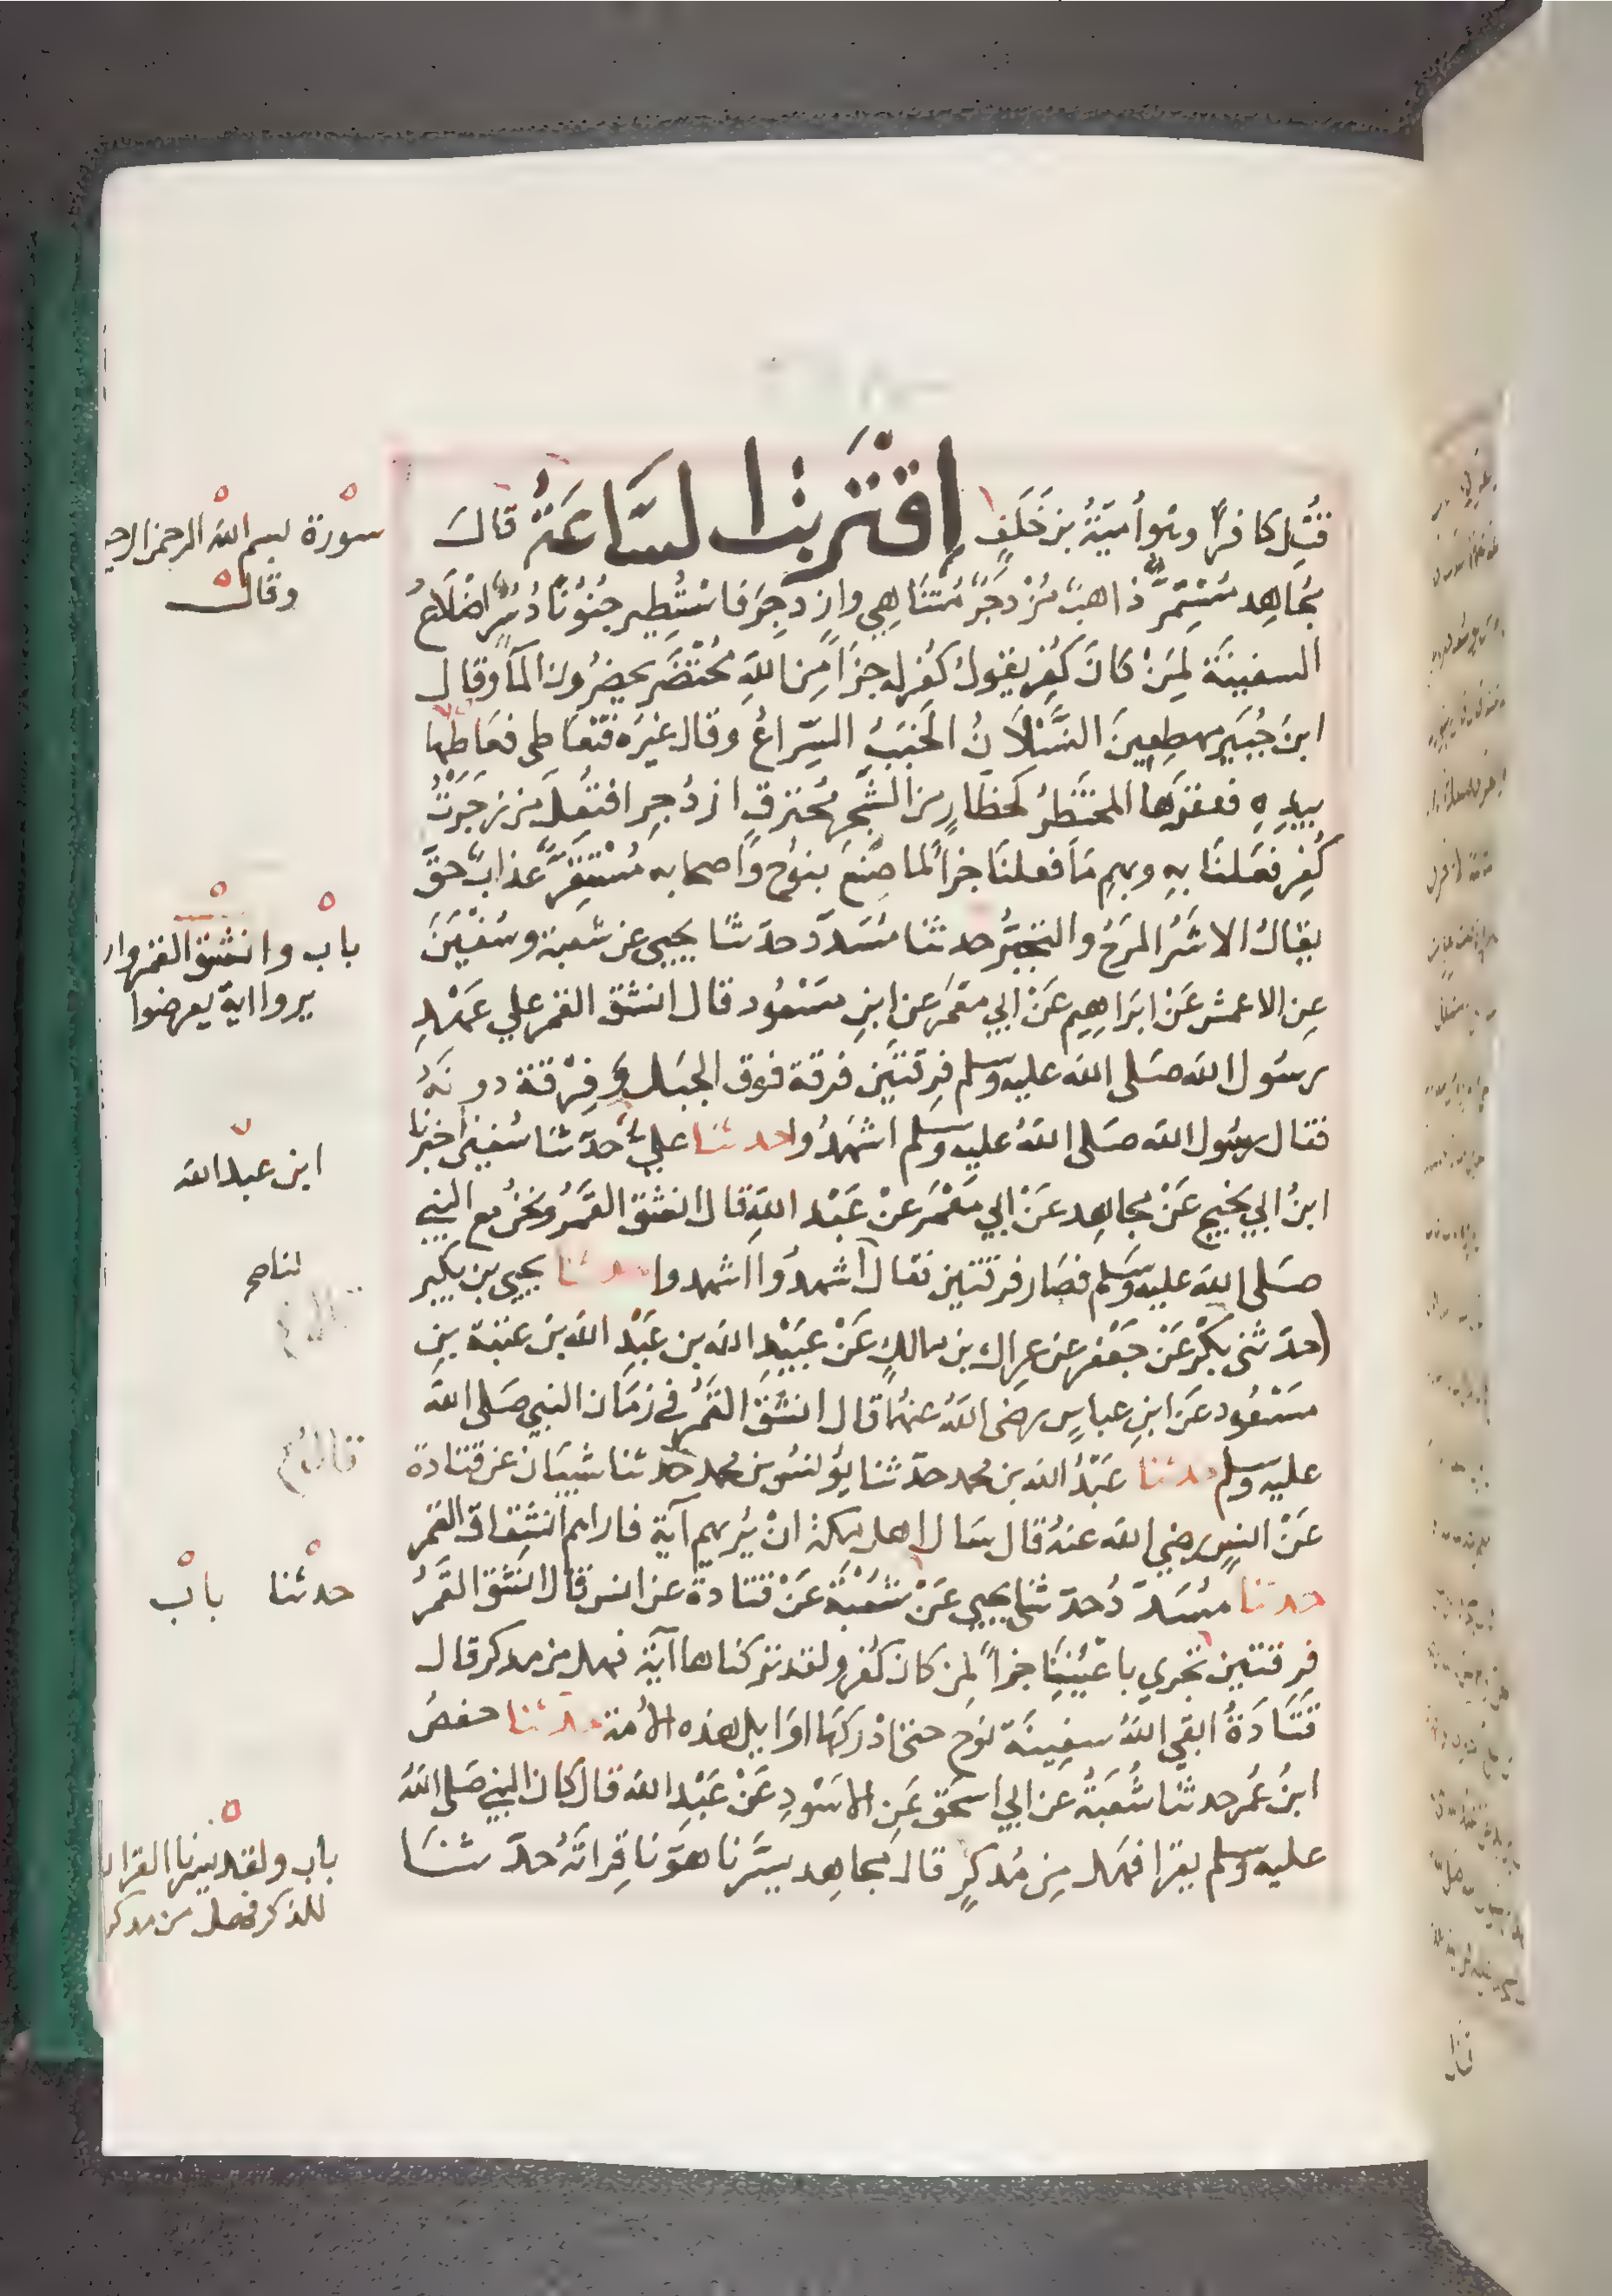 قُتِل كافرًا وهو أُمَيَّةُ بن خَلَفٍ اِقْتَرَبَتِ السَّاعَةُ قالَ
مُجاهِد مُسْتَمِرٌّ ذاهبٌ مُزْدَجَرٌ مُتَنَاهِي وازدجِرَ فاستُطِير جُنُونًا دُسُرٍ اضْلَاعُ
السفينَة لِمَنْ كانَ كُفِر يقولُ كُفِر له جزاً مِن اللهِ مُحْتَضَر يحضرُون المآ وقال
ابن جُبَير مهطِعِينَ النَّسَلَانُ الخَبَبُ السِّراعُ وقال غيرَه فتعَاطى فعَاطها
بيدِهِ فعقرَها المحتَظِرُ كحظارٍ من الشَّجرِ مُحترقٍ ازدُجِر افتُعِلَ من زجَرْتُ
كُفِر فعَلنَا بهِ وبهِم مَا فعلنَا جزاً لما صُنِعَ بنوح وَاصحابه مُسْتَقِرٌّ عذابٌ حَقَّ
يقالُ الاشَرُ المرَحُ والتجبُّر حدثنا مُسَدَّد حدّثنا يحيى عن شعبة وسُفْيَنَ
عِن الاعمش عَنْ ابرَاهِيم عَنْ ابي معْمَر عَن ابنِ مسْعُود قال انشق القمر علي عَهْدِ
رسُول الله صَلى الله عليه وسلم فِرقتَين فرقة فوق الجبَل وَفِرْقَة دونَهُ
فقال رسُول الله صَلى اللهُ عليه وَسلم اشهَدُوا حدثنا علي حدّثنا سُفين اخبرنا
ابنُ ابي نجيح عَنْ مجاهِد عَنْ ابي مَعْمَر عَنْ عَبْد اللهِ قال انشق القَمَرُ ونحْنُ مع النبي
صَلى الله عليه وَسَلم فصَار فرقتين فقال اشهدُوا اشهدوا حدثنا يحيى بن بكير
حدّثني بكْر عَنْ جَعْفر عن عِراك بن مالكٍ عَنْ عُبَيْدِ الله بن عَبْدِ الله بن عتبة بنِ
مَسْعُود عَن ابنِ عباسٍ رضى اللهُ عنهُما قال انشَق القَمَرُ في زمَان النبي صَلى الله
عليه وسلم حدثنا عَبْدُ الله بن محمد حدّثنا يُونسُ بن محمد حدّثنا شيبَان عن قتادة
عَنْ انسٍ رضي الله عنهُ قال سَال اهل مكة انْ يُريهم آيَة فاراهم انشِقاق القمر
حدثنا مُسَدَّدُ حدّثنى يحيي عَنْ شُعْبَة عَنْ قتادة عن انس قال انشق القَمَرُ
فِرقتين تجري باعيُنِنَا جزاً لمن كان كُفر ولقد تركناها آيَة فهل من مدكر قال
قَتَادَةُ ابقي اللهُ سفينَة نوح حتى ادركهَا اوَايل هذه الأمة حدثنا حفصُ
ابنُ عُمر حدثنا شُعَبَةُ عن ابي اسحَق عَن الاسَوْدِ عَنْ عَبْدِ الله قال كان النبي صَلى اللهُ
عليه وَسلم يقرا فهَل مِن مُدكرٍ قال مُجاهِد يسَّرنا هوّنا قِراتَهُ حُدّثنَا
سورة بسم الله الرحمن الرحيم
وقال
باب وانشق القمر وان
يروا اية يعرضوا
ابن عبد الله
حدثنا باب
باب ولقد يسرنا القران
للذكر فهل من مدكر